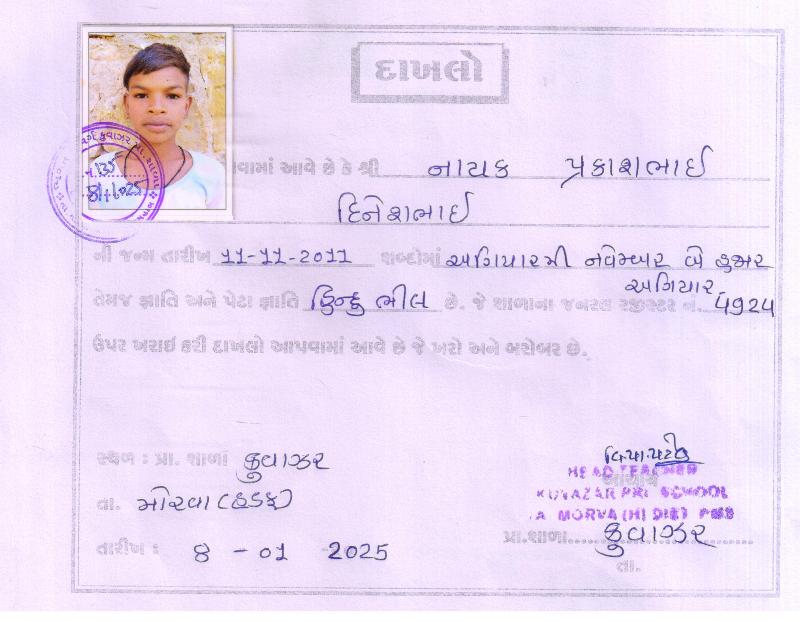 દાખલો
વામાં આવે છે કે શ્રી નાયક પ્રકાશભાઈ
દિનેશભાઈ
ની જન્મ તારીખ 11-11-2011 શબ્દોમાં અગિયારમી નવેમ્બર બે હજાર
અગિયાર
તેમજ જ્ઞાતિ અને પેટા જ્ઞાતિ હિન્દુ ભીલ છે. જે શાળાના જનરલ રજીસ્ટર નં. 4924
ઉપર ખરાઈ કરી દાખલો આપવામાં આવે છે જે ખરો અને બરોબર છે.
135
8/1/2025
સ્થળ : પ્રા. શાળાં કુવાઝર
તા. મોરવા (હડફ)
તારીખ : 8 - 01 2025
આચાર્ય
HEAD TEACHER
KUVAZAR PRI SCHOOL
TA MORVA (H) DIST PMS
પ્રા.શાળા.......... કુવાઝર
તા.